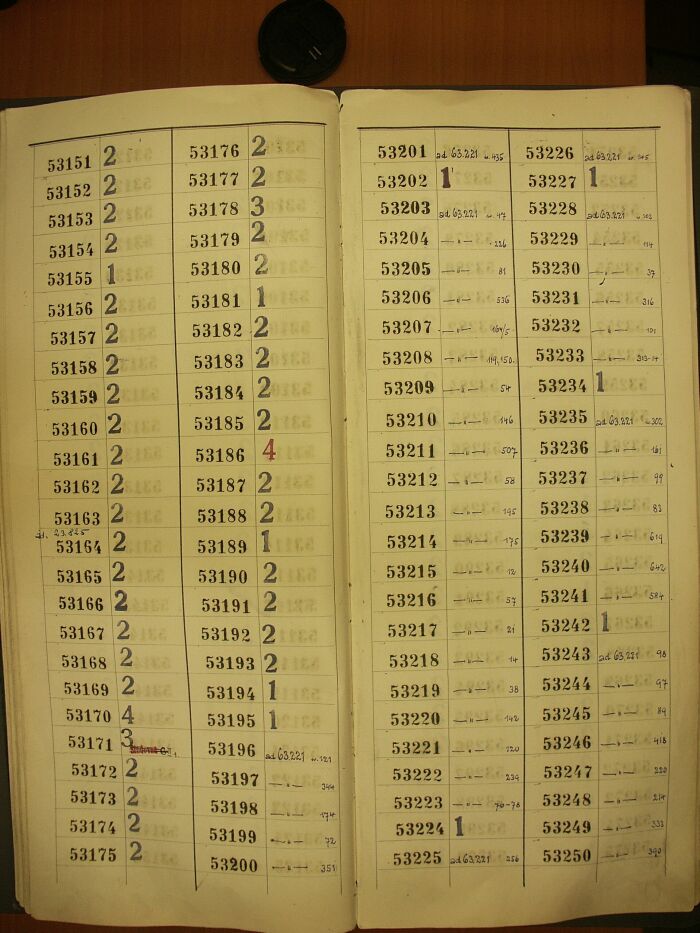 53151 2
53152 2
53153 2
53154 2
53155 1
53156 2
53157 2
53158 2
53159 2
53160 2
53161 2
53162 2
53163 2
23.825
53164 2
53165 2
53166 2
53167 2
53168 2
53169 2
53170 4
53171 3
53172 2
53173 2
53174 2
53175 2
53176 2
53177 2
53178 3
53179 2
53180 2
53181 1
53182 2
53183 2
53184 2
53185 2
53186 4
53187 2
53188 2
53189 1
53190 2
53191 2
53192 2
53193 2
53194 1
53195 1
53196 ad 63.221 u. 121
53197 —„— 344
53198 —„— 174
53199 —„— 72
53200 —„— 351
53201 ad 63.221 u. 435
53202 1
53203 ad 63.221 u. 47
53204 —„— 226
53205 —„— 81
53206 —„— 536
53207 —„— 164/5
53208 —„— 119,150.
53209 —„— 54
53210 —„— 146
53211 —„— 507
53212 —„— 58
53213 —„— 195
53214 —„— 175
53215 —„— 12
53216 —„— 57
53217 —„— 21
53218 —„— 14
53219 —„— 38
53220 —„— 142
53221 —„— 120
53222 —„— 239
53223 —„— 76-78
53224 1
53225 ad 63.221 256
53226 ad 63.221 u.
53227 1
53228 ad 63.221 u. 102
53229 —„— 114
53230 —„— 37
53231 —„— 316
53232 —„— 101
53233 —„— 313-14
53234 1
53235 ad 63.221 u. 302
53236 —„— 161
53237 —„— 99
53238 —„— 83
53239 —„— 619
53240 —„— 642
53241 —„— 584
53242 1
53243 ad 63.221 98
53244 —„— 97
53245 —„— 89
53246 —„— 418
53247 —„— 220
53248 —„— 214
53249 —„— 333
53250 —„— 390